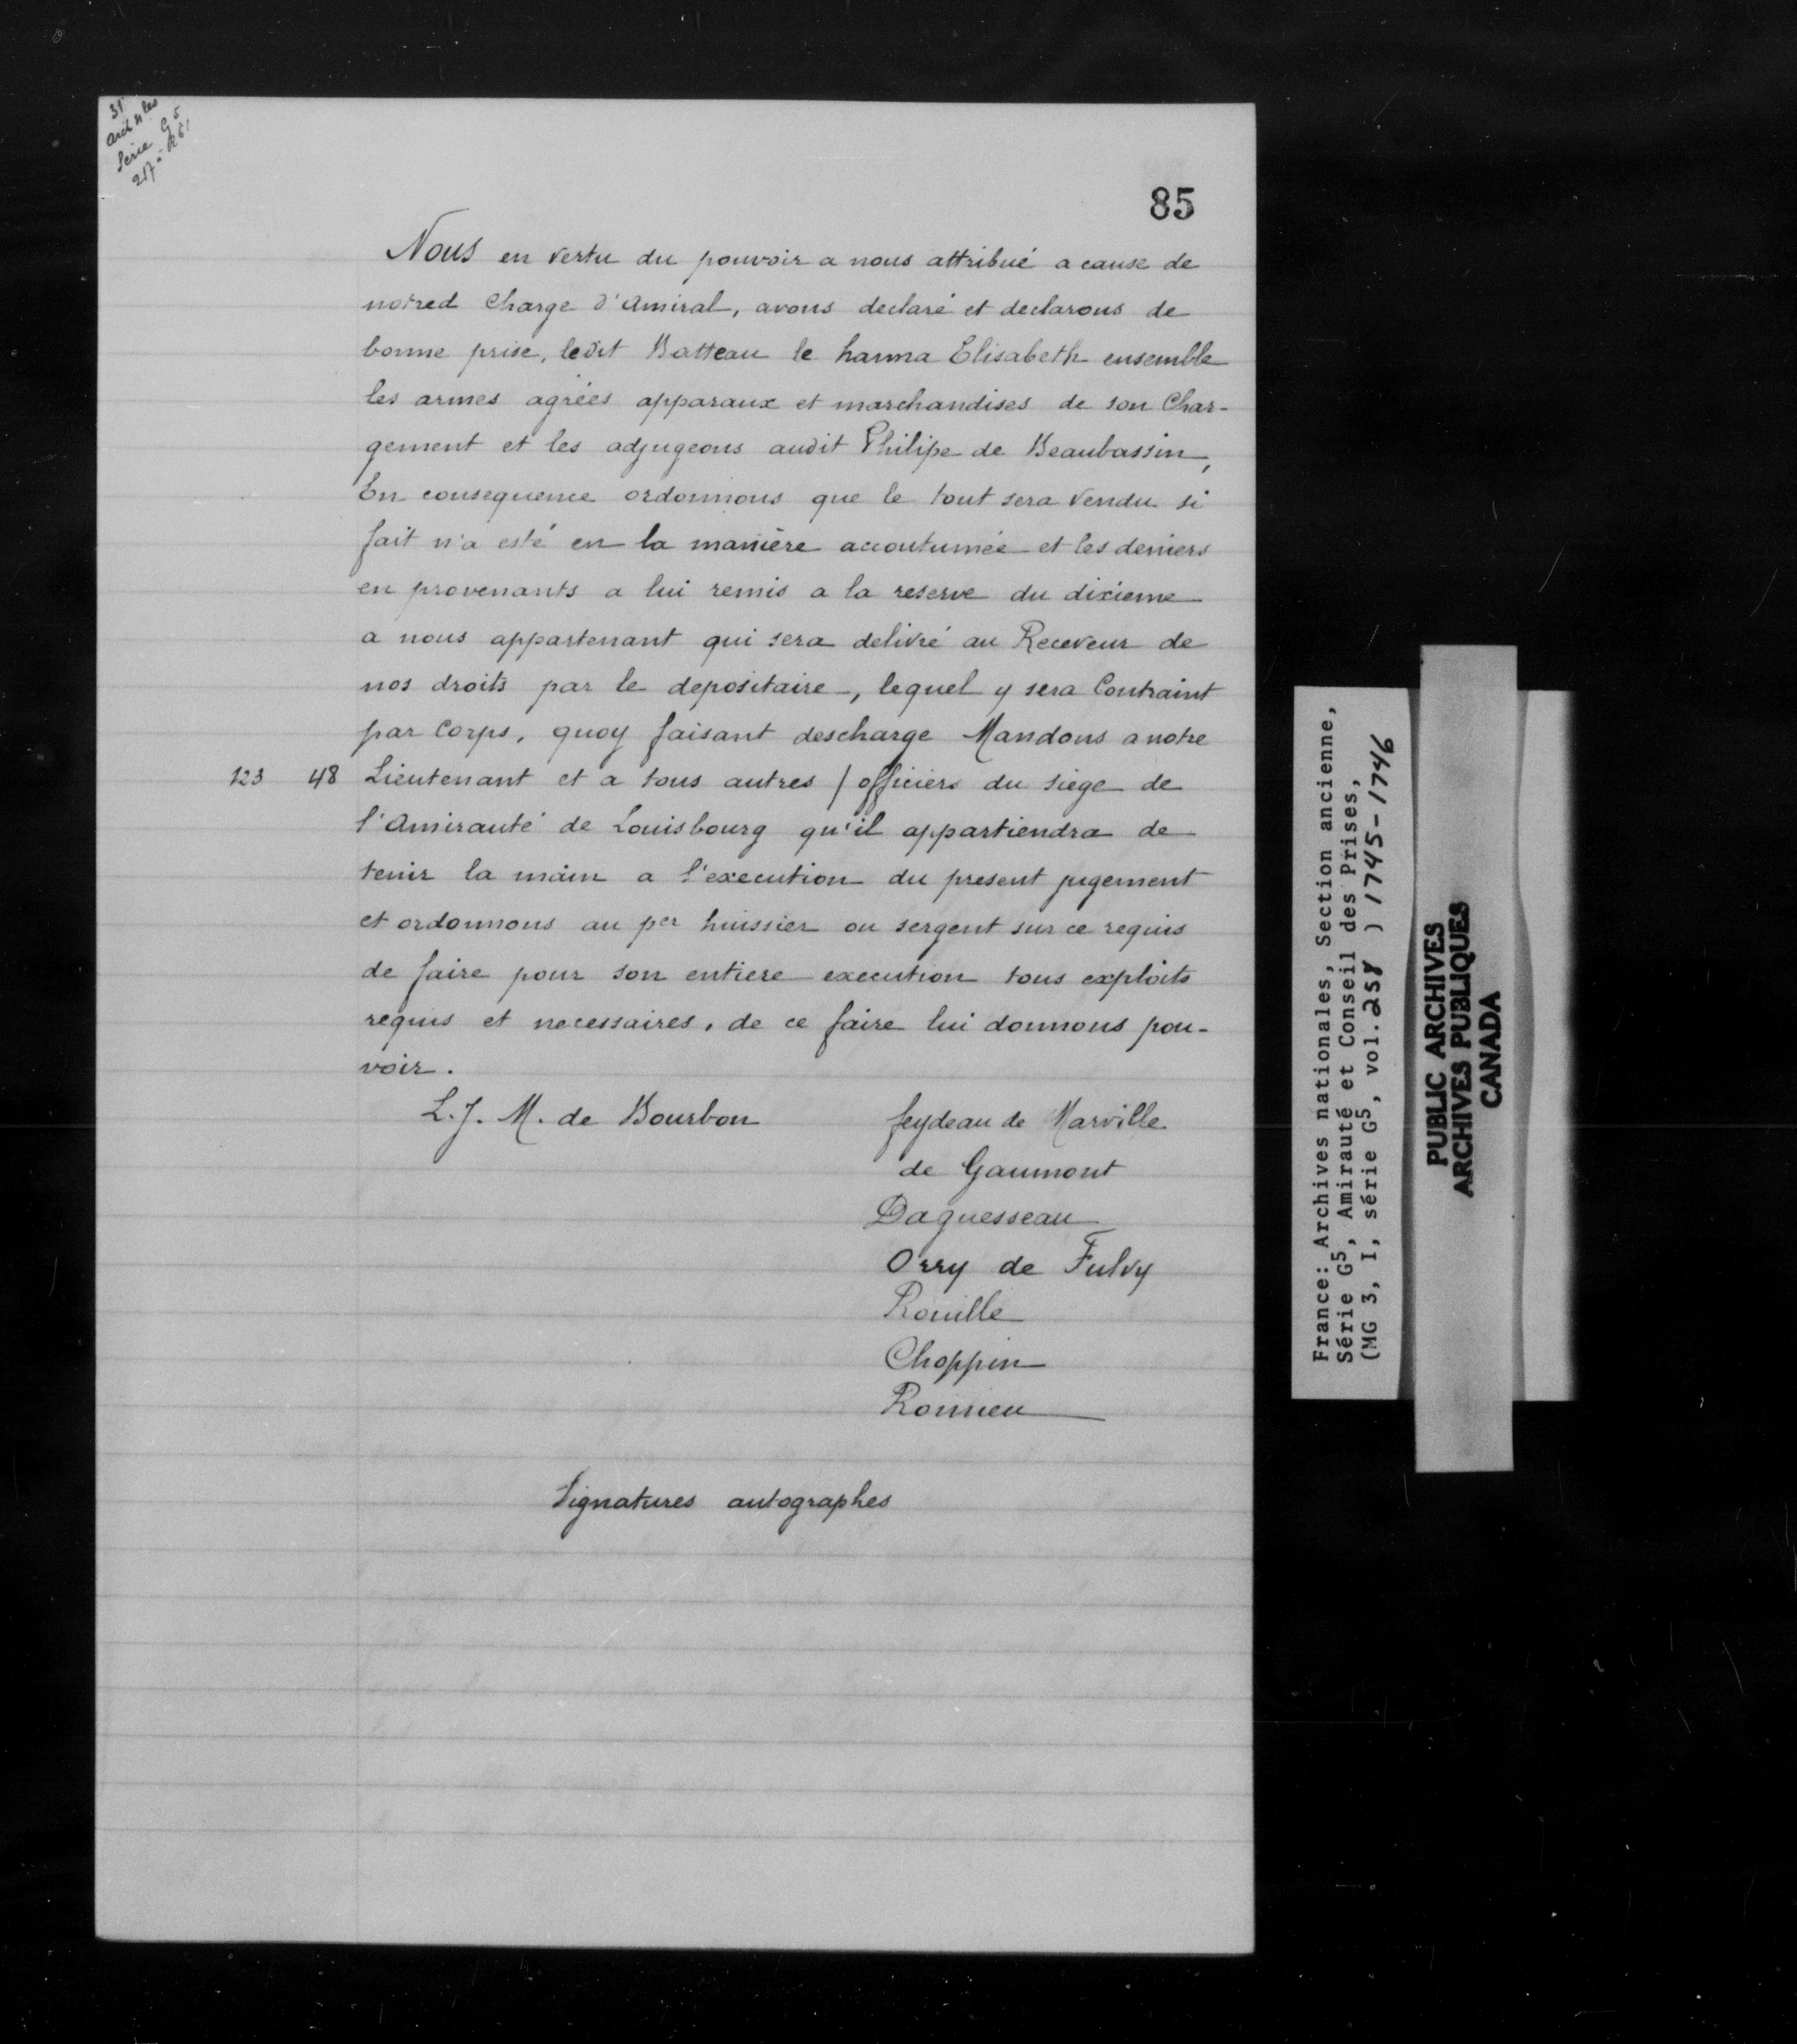 31
Arch nles
Série G5
85
Nous en vertu du pouvoir a nous attribué a cause de
notred Charge d'Amiral, avons declaré et declarons de
bonne prise, ledit Batteau le hanna Elisabeth ensemble
les armes agrées apparaux et marchandises de son Char-
gement et les adjugeons audit Philipe de Beaubassin,
En consequence ordonnons que le tout sera vendu si
fait n'a esté en la manière accoutumée et les deniers
en provenants a lui remis a la reserve du dixieme
a nous appartenant qui sera delivré au Receveur de
nos droits par le depositaire, lequel y sera Contraint
par Corps, quoy faisant descharge Mandons a notre
123 48 Lieutenant et a tous autres / officiers du siege de
l'Amirauté de Louisbourg qu'il appartiendra de
tenir la main a l'execution du present jugement
et ordonnons au per huissier ou sergent sur ce requis
de faire pour son entiere execution tous exploits
requis et necessaires, de ce faire lui donnons pou-
voir.
L. J. M. de Bourbon feydeau de Marville
de Gaumont
Daguesseau
Orry de Fulvy
Rouillé
Choppin
Romieu
Signatures autographes
France: Archives nationales, Section ancienne,
Série G5, Amirauté et Conseil des Prises,
(MG 3, I, série G5, vol. 258 ) 1745-1746
PUBLIC ARCHIVES
ARCHIVES PUBLIQUES
CANADA